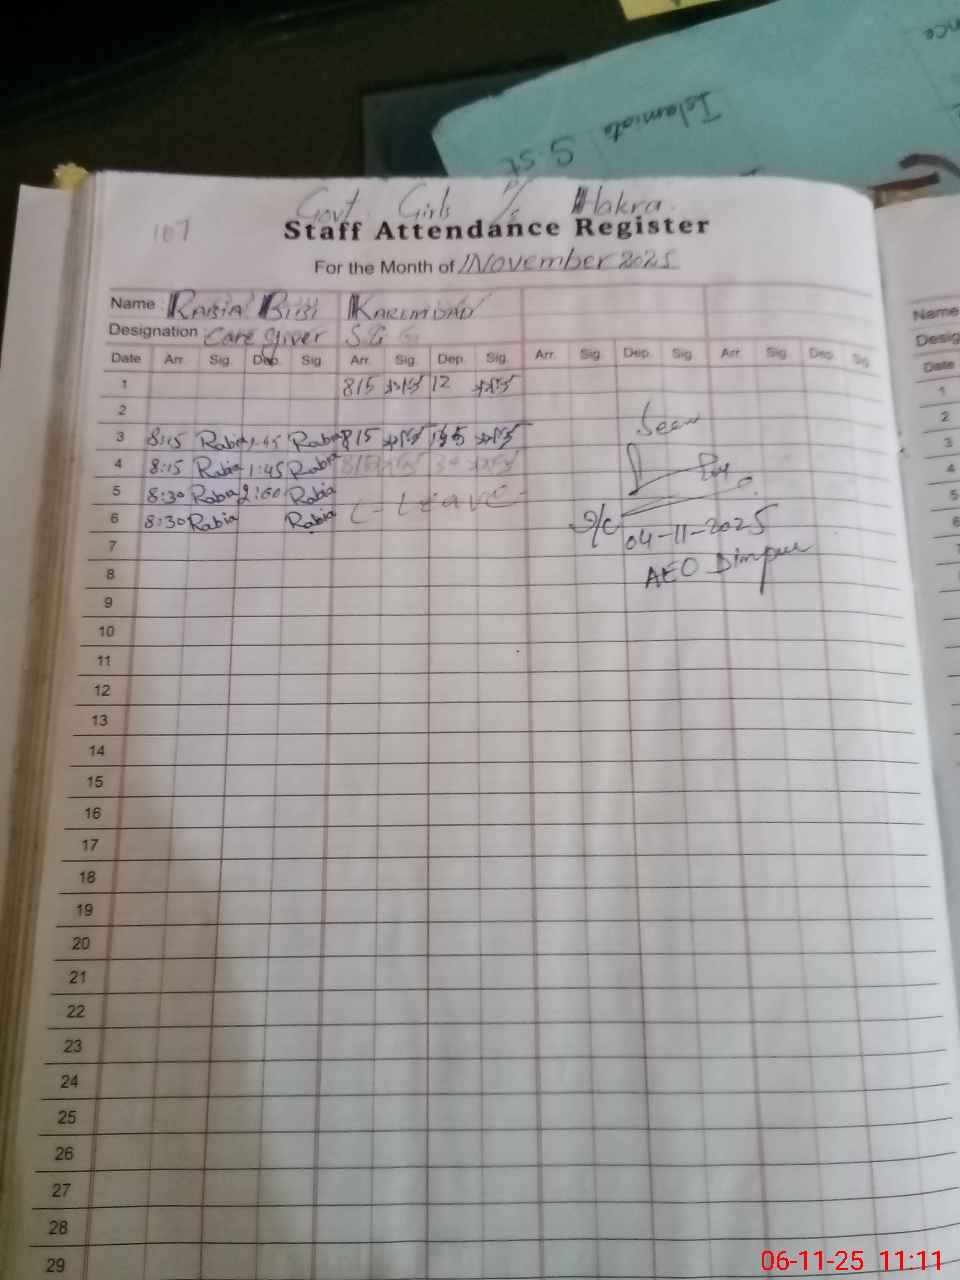 Islamiate
S.St
Govt. Girls P/S Hakra.
107
Staff Attendance Register
For the Month of November 2025
Name : RABIA BIBI KARIMDAD
Designation Care giver
Date Arr. Sig. Dep. Sig. Arr. Sig. Dep. Sig. Arr. Sig. Dep. Sig. Arr. Sig. Dep. Sig.
1 8/5 12
2
3 8:15 Rabia 1:45 Rabia 815
4 8:15 Rabia 1:45 Rabia 815
5 8:30 Rabia 2:00 Rabia C - Leave -
6 8:30 Rabia Rabia
7
8
9
10
11
12
13
14
15
16
17
18
19
20
21
22
23
24
25
26
27
28
29
Seen
04-11-2025
AEO
Name
Desig
Date
1
2
3
4
5
6
06-11-25 11:11